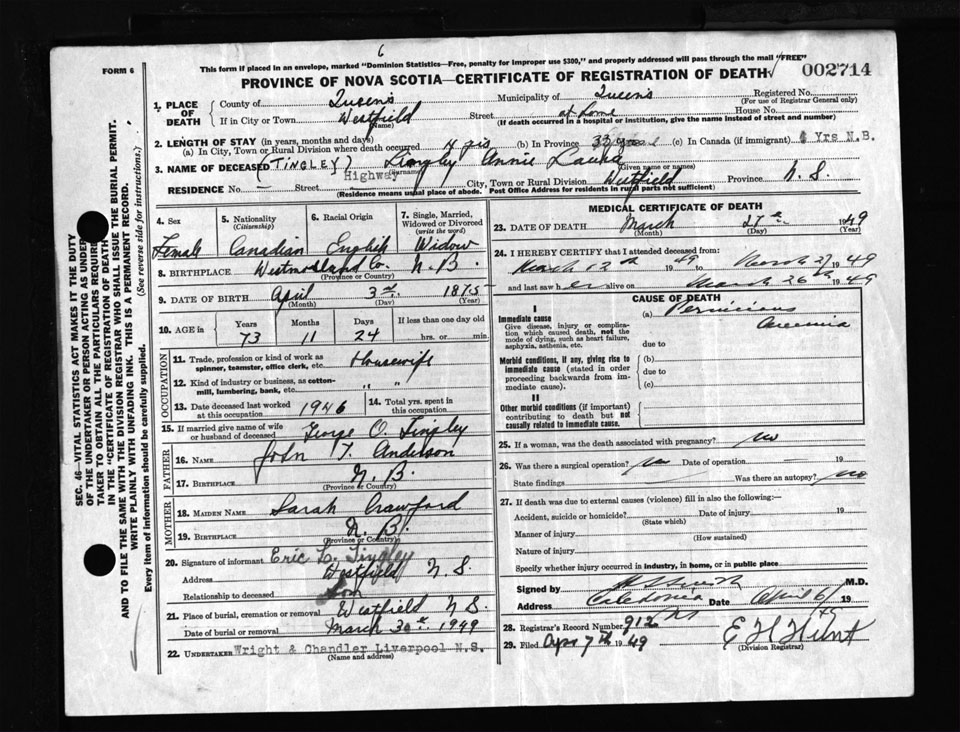 6
FORM 6
This form if placed in an envelope, marked "Dominion Statistics—Free, penalty for improper use $300," and properly addressed will pass through the mail "FREE"
PROVINCE OF NOVA SCOTIA—CERTIFICATE OF REGISTRATION OF DEATH
002714
1. PLACE OF DEATH { County of Queens Municipality of Queens Registered No.
(For use of Registrar General only)
If in City or Town Westfield Street at home House No.
(Name) (If death occurred in a hospital or institution, give the name instead of street and number)
2. LENGTH OF STAY (in years, months and days)
(a) In City, Town or Rural Division where death occurred 4 yrs (b) In Province 33 yrs (c) In Canada (if immigrant) Yrs N.B.
3. NAME OF DECEASED (TINGLEY) Tingley Annie Laura
(Surname) (Given name or names)
RESIDENCE No. Street Highway City, Town or Rural Division Westfield Province N.S.
(Residence means usual place of abode. Post Office Address for residents in rural parts not sufficient)
4. Sex
Female
5. Nationality
(Citizenship)
Canadian
6. Racial Origin
English
7. Single, Married, Widowed or Divorced
(write the word)
Widow
8. BIRTHPLACE Westmorland Co. N.B.
(Province or Country)
9. DATE OF BIRTH April 3rd 1875
(Month) (Day) (Year)
10. AGE in Years Months Days If less than one day old
73 11 24 hrs. or min.
OCCUPATION
11. Trade, profession or kind of work as spinner, teamster, office clerk, etc. Housewife
12. Kind of industry or business, as cotton-mill, lumbering, bank, etc. " "
13. Date deceased last worked at this occupation 1946
14. Total yrs. spent in this occupation
15. If married give name of wife or husband of deceased George O. Tingley
FATHER
16. NAME John T. Anderson
17. BIRTHPLACE N.B.
(Province or Country)
MOTHER
18. MAIDEN NAME Sarah Crawford
19. BIRTHPLACE N.B.
(Province or Country)
20. Signature of informant Eric L. Tingley
Address Westfield N.S.
Relationship to deceased Son
21. Place of burial, cremation or removal Westfield N.S.
Date of burial or removal March 30th 1949
22. UNDERTAKER Wright & Chandler Liverpool N.S.
(Name and address)
MEDICAL CERTIFICATE OF DEATH
23. DATE OF DEATH March 27th 1949
(Month) (Day) (Year)
24. I HEREBY CERTIFY that I attended deceased from:
March 12th 1949 to March 27 1949
and last saw her alive on March 26th 1949
CAUSE OF DEATH
I
Immediate cause
Give disease, injury or complication which caused death, not the mode of dying, such as heart failure, asphyxia, asthenia, etc.
(a) Pernicious Anemia
due to
Morbid conditions, if any, giving rise to immediate cause (stated in order proceeding backwards from immediate cause).
(b)
due to
(c)
II
Other morbid conditions (if important) contributing to death but not causally related to immediate cause.
25. If a woman, was the death associated with pregnancy? no
26. Was there a surgical operation? no Date of operation 19
State findings Was there an autopsy? no
27. If death was due to external causes (violence) fill in also the following:—
Accident, suicide or homicide? Date of injury 19
(State which)
Manner of injury
(How sustained)
Nature of injury
Specify whether injury occurred in industry, in home, or in public place
Signed by M.D.
Address Caledonia Date April 6/ 19
28. Registrar's Record Number 912
29. Filed Apr 7th 1949 E H Hunt
(Division Registrar)
SEC. 46—VITAL STATISTICS ACT MAKES IT THE DUTY
OF THE UNDERTAKER OR PERSON ACTING AS UNDERTAKER TO OBTAIN ALL THE PARTICULARS REQUIRED
IN THE "CERTIFICATE OF REGISTRATION OF DEATH"
AND TO FILE THE SAME WITH THE DIVISION REGISTRAR WHO SHALL ISSUE THE BURIAL PERMIT.
WRITE PLAINLY WITH UNFADING INK. THIS IS A PERMANENT RECORD.
Every item of information should be carefully supplied. (See reverse side for instructions.)